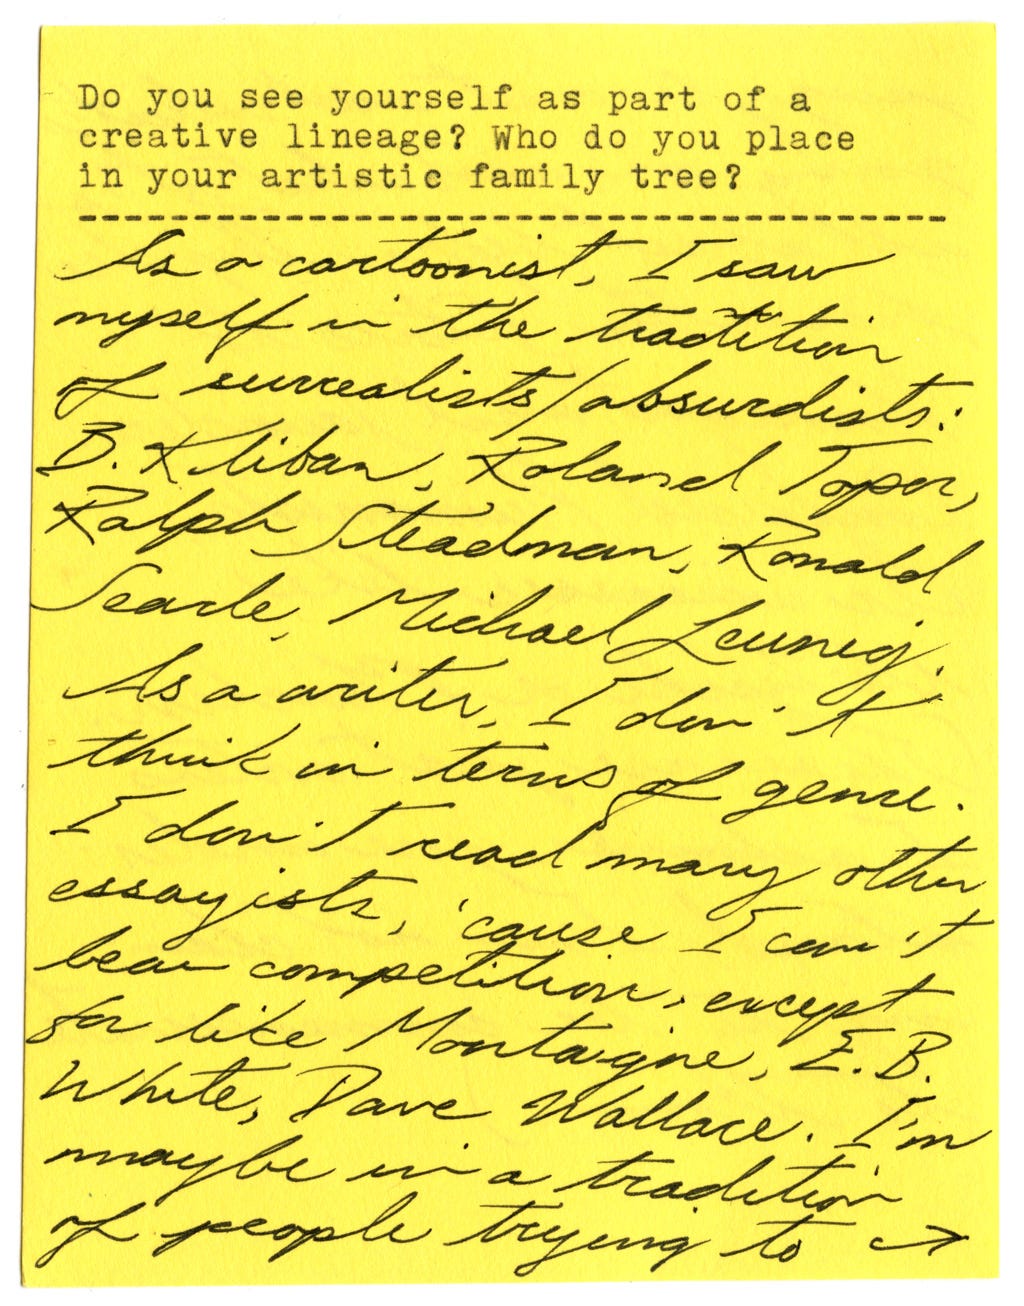 Do you see yourself as part of a
creative lineage? Who do you place
in your artistic family tree?
As a cartoonist, I saw
myself in the tradition
of surrealists/absurdists:
B. Kliban, Roland Topor,
Ralph Steadman, Ronald
Searle, Michael Leunig.
As a writer, I don't
think in terms of genre.
I don't read many other
essayists, 'cause I can't
bear competition, except
for like Montaigne, E.B.
White, Dave Wallace. I'm
maybe in a tradition
of people trying to →